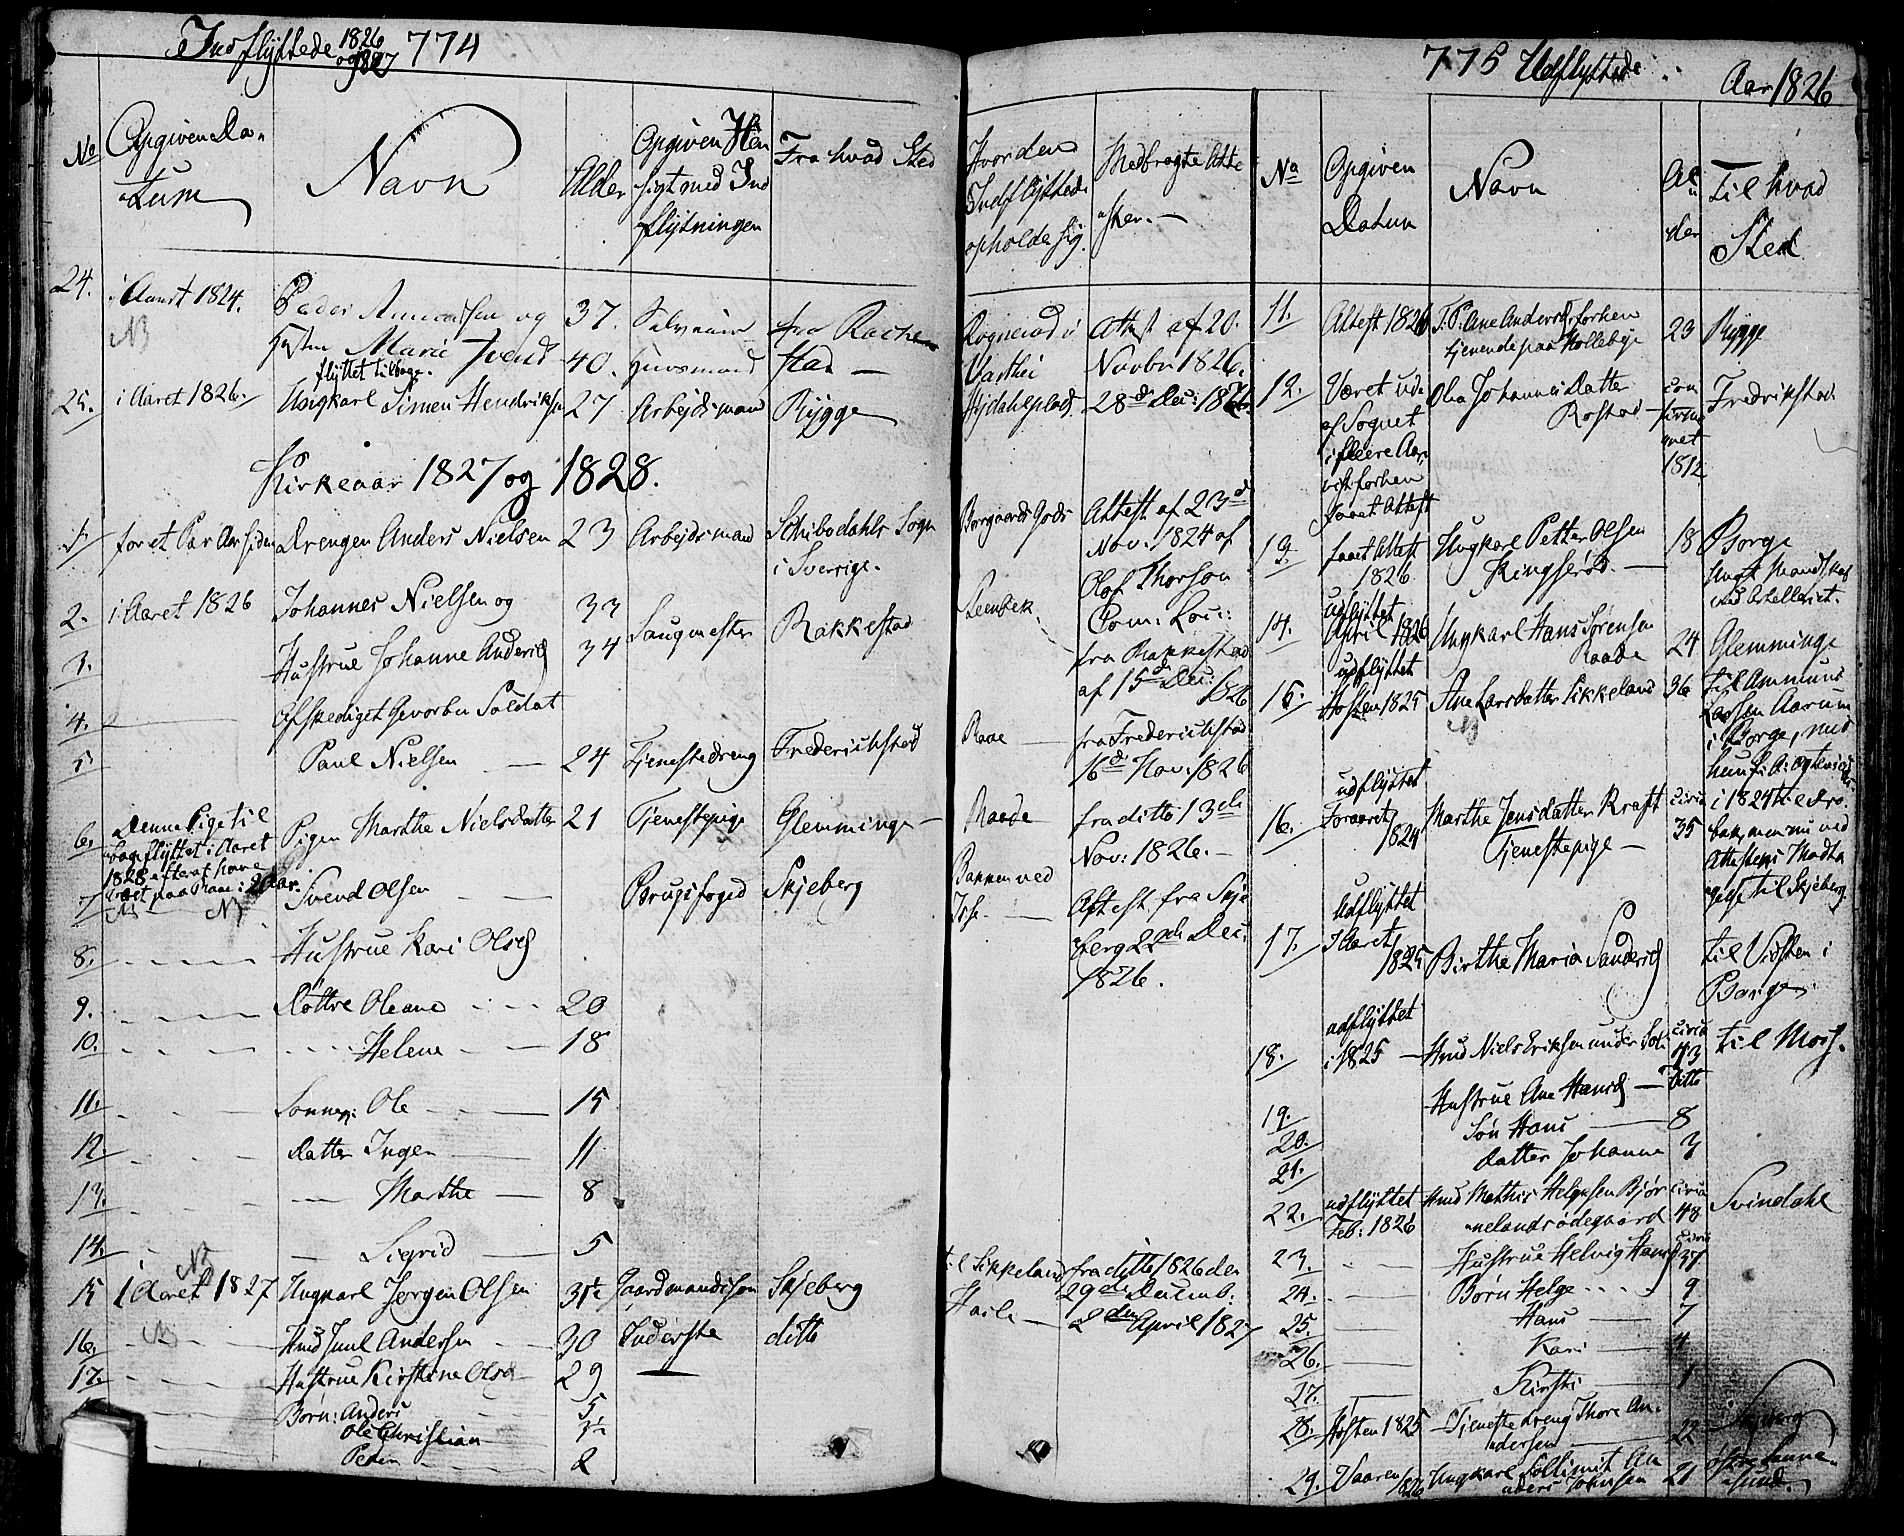 Indflyttede 1826 og 1827 774
No
Opgiven Da-
tum
Navn
Alder
Opgiven Hen
sigt med Ind
flytningen
Fra hvad Sted
Hvor den
Indflyttede
opholde sig.
Medbragte Atte
ster.
24. i Aaret 1824. Peder Amundsen og 37. Huusmand fra Rakke
NB Marie 40. stad
flyttet tilbage.
Attest af 20.
Novbr 1826.
25. i Aaret 1826. Ungkarl Simen Hendriksen 27 Arbejdsmand Rygge 28de Dec: 1826.
Kirkeaar 1827 og 1828.
1 for et Par Aar siden Drengen Anders Nielsen 23 Arbejdsmand Schibodahls Sogn
i Sverrige.
Borgaards Gods Attest af 23d
Nov. 1824 af
Olof Thorson
Com:
2. i Aaret 1826 Johannes Nielsen og 33 Saugmester Rakkestad
3. Hustrue Johanne Andersd 34
fra Rakkestad
af 15d Dec: 1826
4. Afskediget Gevorben Soldat
5 Paul Nielsen 24 Tjenestedreng Fredrichstad
Raae fra Friderichstad
16d Nov: 1826
6. Denne Pige til
bageflyttet i Aaret
1828 efter at have
været paa Raae i 2 Aar.
Pigen Marthe Nielsdatter 21 Tjenestepige Glemminge
Raade fra ditto 13de
Nov: 1826.
7 NB Svend Olsen Brugsfoged Skjeberg
Bakken ved
Ise. Attest fra Skje
berg 22de Dec:
1826.
8. Hustrue Kari Olsd
9. Dottre Oleane 20
10. Helene 18
11. Sønner: Ole 15
12. Datter Inger 11
13. Marthe 8
14. Sigrid 5
NB
15 i Aaret 1827 Ungkarl Jørgen Olsen 31½ Gaardmandssøn Skjeberg
til Sikkeland fra ditto 1826 den
29de Decemb:
16. NB Huusmd Juul Andersen 30 Inderste ditto
2den April 1827
17. Hustrue Kirstine Olsd 29
Børn: Anders 5
Ole Christian 3½
Peder 2
775 Udflyttede Aar 1826
No
Opgiven
Datum
Navn
Al
der
Til hvad
Sted
11. Attest 1826 T: P: Ane Andersd forhen 23 Rygge
tjenende paa Hollebye
12. Været ude
af Sognet
i fleere Aar,
men forhen
faaet Attest
Olia Johannes Datter
Rostad
con
firme
ret
1812
Fredrikstad
13. faaet Attest
1826
Ungkarl Petter Olsen 18 Borge
Kingserød.
Ungt Mandskab
ved Artelleriet.
14. udflyttet
April 1826
Ungkarl Hans Sørensen 24 Glemminge
Raade
15. udflyttet
Høsten 1825
Ane Larsdatter Sikkeland 36 til Ammund
Larsen Aarum
i Borge, med
NB
16. udflyttet
Foraaret
1824
Marthe Jensdatter Kraft circa
35
Tjenestepige
i 1824 til Dro-
bak, men nu ved
Attestens Modta
gelse til Skjeberg.
17. Udflyttet
I Aaret
1825
Birthe Maria Sandersd til Vidsten i
Borge.
18. udflyttet
i 1825
Huusmd Niels Eriksen under circa
43
til Moss.
19. Hustrue Ane Hansd Ditto
20. Søn Hans 8
21. Datter Johanne 3
22. udflyttet
Feb: 1826
Huusmd Mathis Helgesen Bjør
nelandsødegaard circa
48
Svindahl
23. Hustrue Helvig Hansd circa 37
24. Børn Helge 9
25. Hans 7
26. Kari 4
27. Kirsti 1
28. Høsten 1825 Tjenestedreng Thore An-
dersen 22 Skjeberg
29. Vaaren 1826 Ungkarl An
ders Johnsen 21